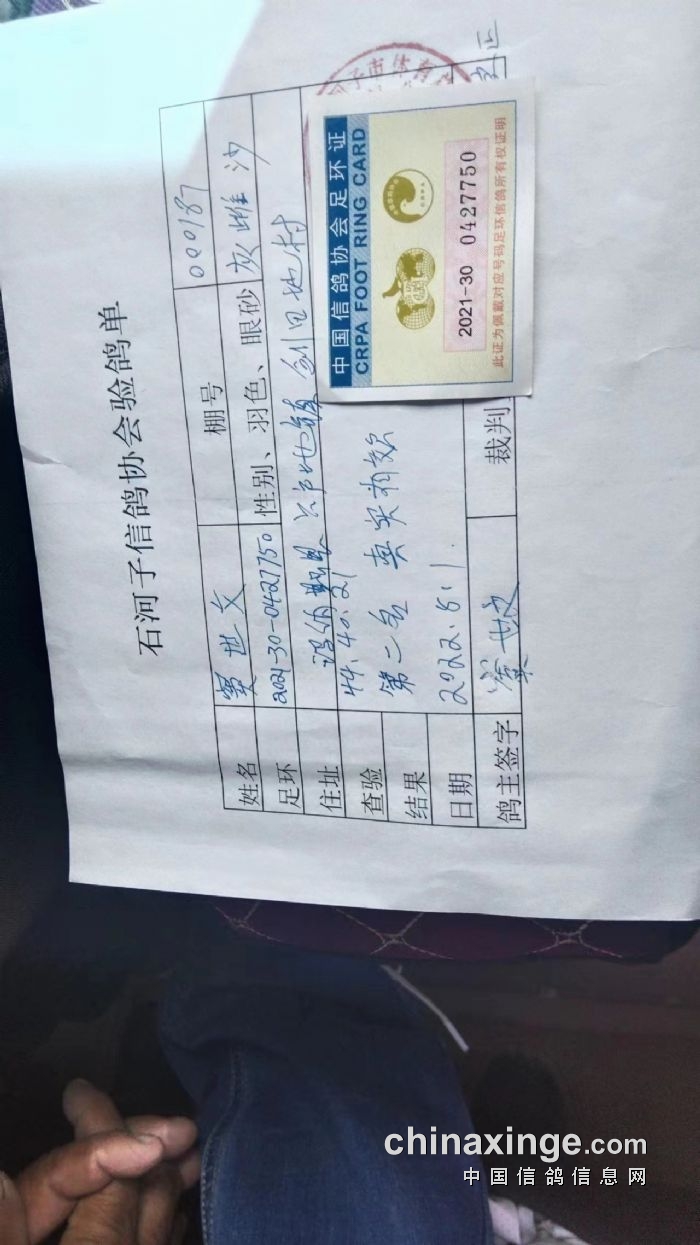 石河子信鸽协会验鸽单
姓名 窦世文 棚号 000187
足环 2021-30-0427750 性别、羽色、眼砂 灰雌 沙
住址
查验 44.40.21
结果 第二名 真实有效
日期 2022.5.1.
鸽主签字 窦世文 裁判
中国信鸽协会足环证
CRPA FOOT RING CARD
2021-30 0427750
此证为佩戴对应号码足环信鸽所有权证明
chinaxinge.com
中国信鸽信息网